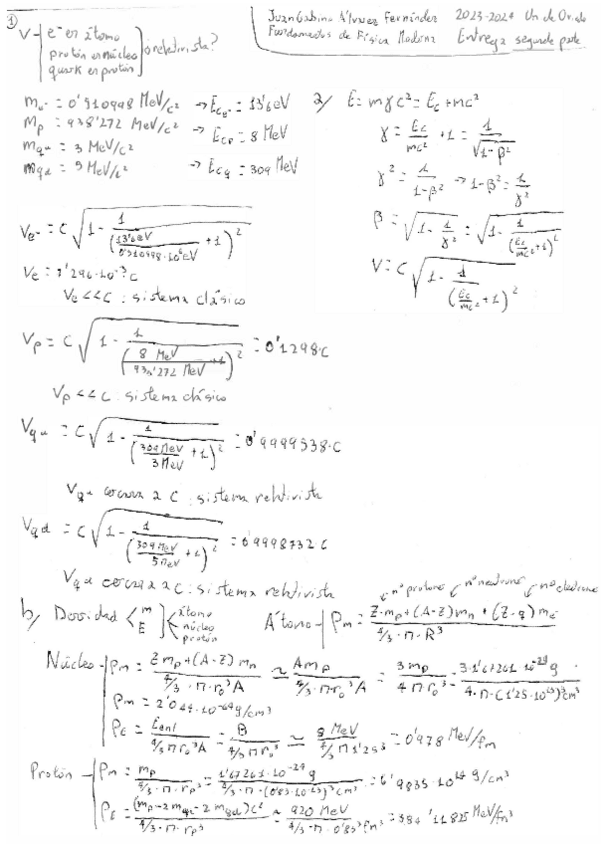 ① Juan Gabino Álvarez Fernández 2023-2024 Un. de Oviedo
Fundamentos de Física Moderna Entrega segunda parte
V e⁻ en átomo
protón en núcleo
quark en protón
¿relativista?
m_e⁻ = 0'510998 MeV/c² → E_ce⁻ = 13'6 eV
m_p = 938'272 MeV/c² → E_cp = 8 MeV
m_qu = 3 MeV/c²
m_qd = 5 MeV/c² → E_cq = 309 MeV
a/ E = mγc² = E_c + mc²
γ = E_c/mc² + 1 = 1/√(1-β²)
γ² = 1/(1-β²) → 1-β² = 1/γ²
β = √(1 - 1/γ²) = √(1 - 1/(E_c/mc² + 1)²)
V = c√(1 - 1/(E_c/mc² + 1)²)
V_e⁻ = c√(1 - 1/(13'6 eV/0'510998·10⁶ eV + 1)²)
V_e = 7'296·10⁻³ c
V_e << c : sistema clásico
V_p = c√(1 - 1/(8 MeV/938'272 MeV + 1)²) = 0'1298·c
V_p << c : sistema clásico
V_qu = c√(1 - 1/(309 MeV/3 MeV + 1)²) = 0'9999538·c
V_qu cercana a c : sistema relativista
V_qd = c√(1 - 1/(309 MeV/5 MeV + 1)²) = 0'9998732 c
V_qd cercana a c : sistema relativista
b/ Densidad m E átomo núcleo protón
nº protones nº neutrones nº electrones
Átomo ρ_m = (Z·m_p + (A-Z)m_n + (Z-q)m_e)/(4/3·π·R³)
Núcleo ρ_m = (Zm_p + (A-Z)m_n)/(4/3·π·r₀³A) ≃ Am_p/(4/3·π·r₀³A) = 3m_p/(4π r₀³) = 3·1'67261·10⁻²⁴ g/(4·π·(1'25·10⁻¹³)³ cm³)
ρ_E = E_enl/(4/3πr₀³A) = B/(4/3πr₀³) ≃ 8 MeV/(4/3π1'25³) = 0'978 MeV/fm
Protón ρ_m = m_p/(4/3·π·r_p³) = 1'67261·10⁻²⁴ g/(4/3·π·(0'83·10⁻¹³)³ cm³) = 6'9835·10¹⁴ g/cm³